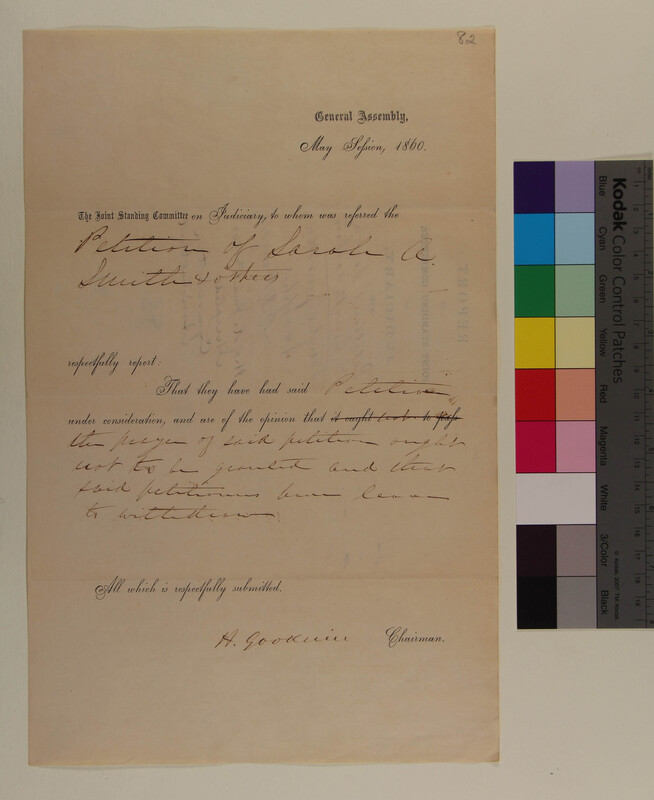 82
General Assembly,
May Session, 1860.
The Joint Standing Committee on Judiciary, to whom was referred the
Petition of Sarah A.
Smith & others
respectfully report:
That they have had said Petition
under consideration, and are of the opinion that it ought not to pass
the prayer of said petition ought
not to be granted and that
said petitioners have leave
to withdraw.
All which is respectfully submitted.
H. Goodwin Chairman.
Kodak Color Control Patches
Blue
Cyan
Green
Yellow
Red
Magenta
White
3/Color
Black